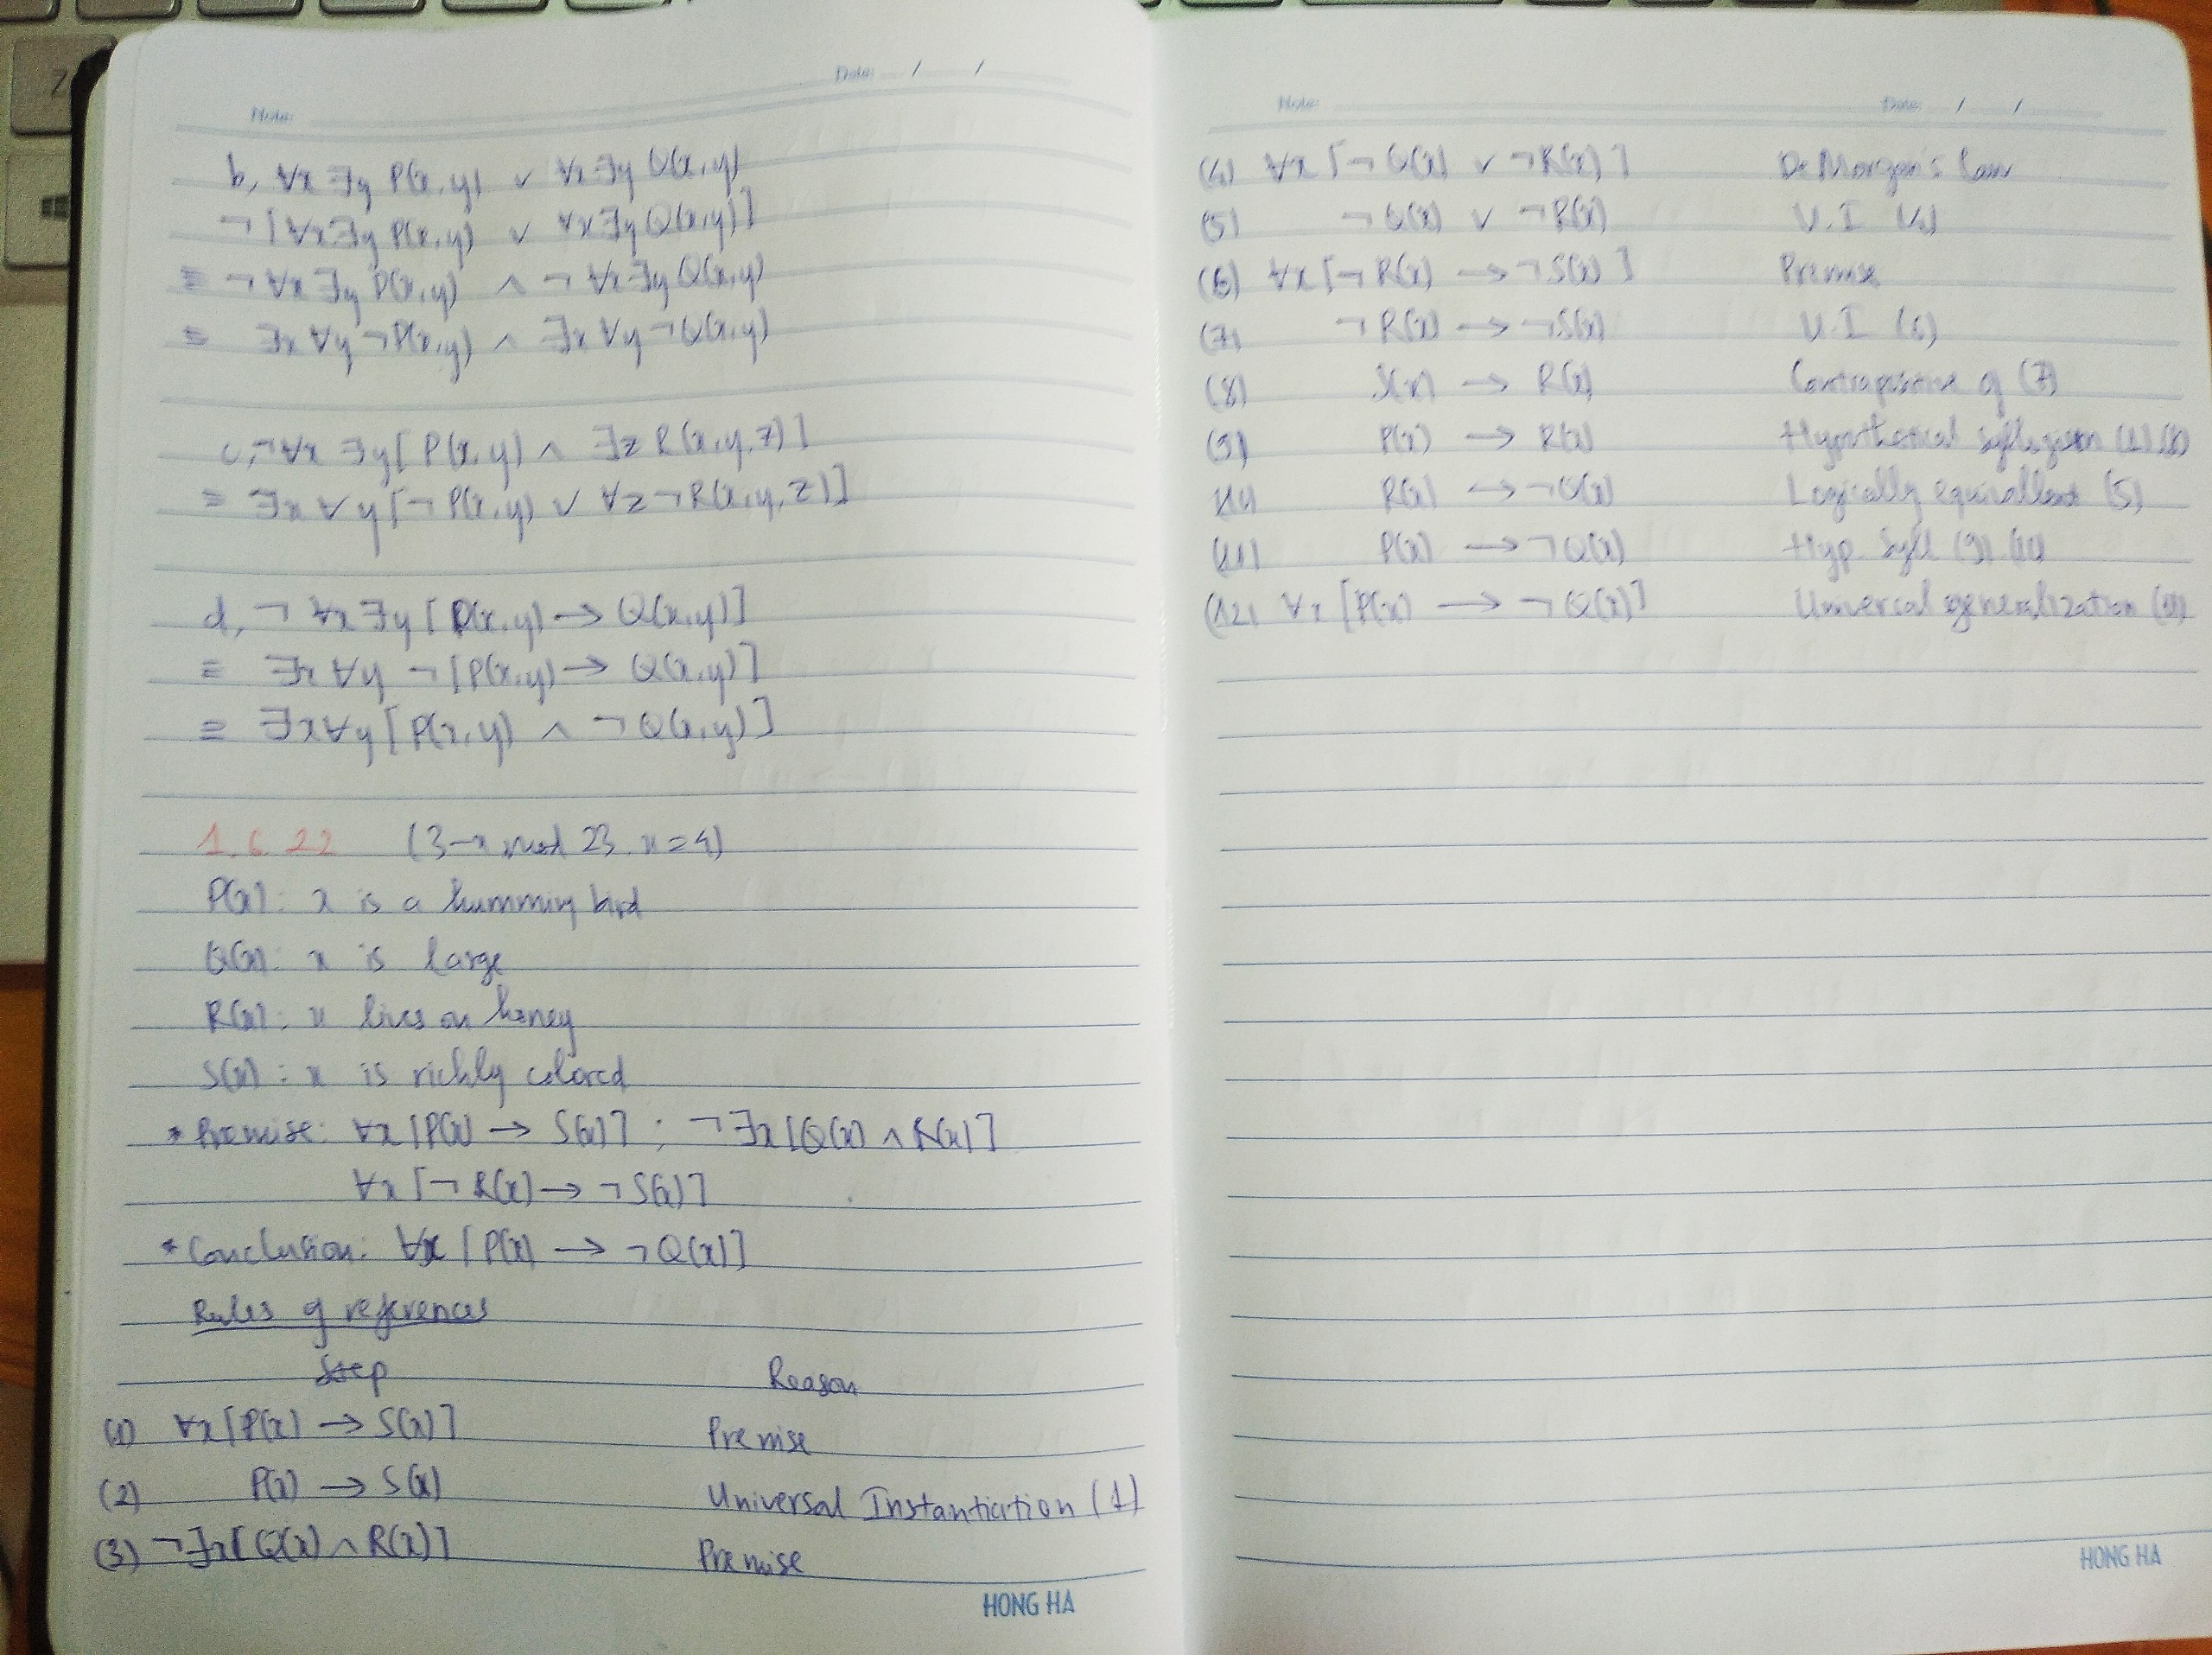 Note:
Date: / /
b, ∀x ∃y P(x,y) ∨ ∀x ∃y Q(x,y)
¬[∀x∃y P(x,y) ∨ ∀x∃y Q(x,y)]
≡ ¬∀x ∃y P(x,y) ∧ ¬ ∀x∃y Q(x,y)
≡ ∃x ∀y ¬P(x,y) ∧ ∃x ∀y ¬Q(x,y)
c, ¬∀x ∃y[P(x,y) ∧ ∃z R(x,y,z)]
≡ ∃x ∀y[¬P(x,y) ∨ ∀z ¬R(x,y,z)]
d, ¬ ∀x ∃y [P(x,y) → Q(x,y)]
≡ ∃x ∀y ¬[P(x,y) → Q(x,y)]
≡ ∃x∀y[P(x,y) ∧ ¬Q(x,y)]
1.6.22 (3-x mod 23. x=4)
P(x): x is a humming bird
Q(x): x is large
R(x): x lives on honey
S(x): x is richly colored
* Premise: ∀x[P(x) → S(x)] ; ¬∃x[Q(x) ∧ R(x)]
∀x[¬R(x) → ¬S(x)]
* Conclusion: ∀x [P(x) → ¬Q(x)]
Rules of references
Step Reason
(1) ∀x[P(x) → S(x)] Premise
(2) P(x) → S(x) Universal Instantiation (1)
(3) ¬∃x[Q(x) ∧ R(x)] Premise
HONG HA
Note:
Date: / /
(4) ∀x [¬Q(x) ∨ ¬R(x)] De Morgan's law
(5) ¬Q(x) ∨ ¬R(x) U.I (4)
(6) ∀x[¬R(x) → ¬S(x)] Premise
(7) ¬R(x) → ¬S(x) U.I (6)
(8) S(x) → R(x) Contrapositive of (7)
(9) P(x) → R(x) Hypothetical syllogism (2)(8)
R(x) → ¬Q(x) Logically equivallent (5)
(11) P(x) → ¬Q(x) Hyp. Syll (9)
(12) ∀x [P(x) → ¬Q(x)] Universal generalization (11)
HONG HA